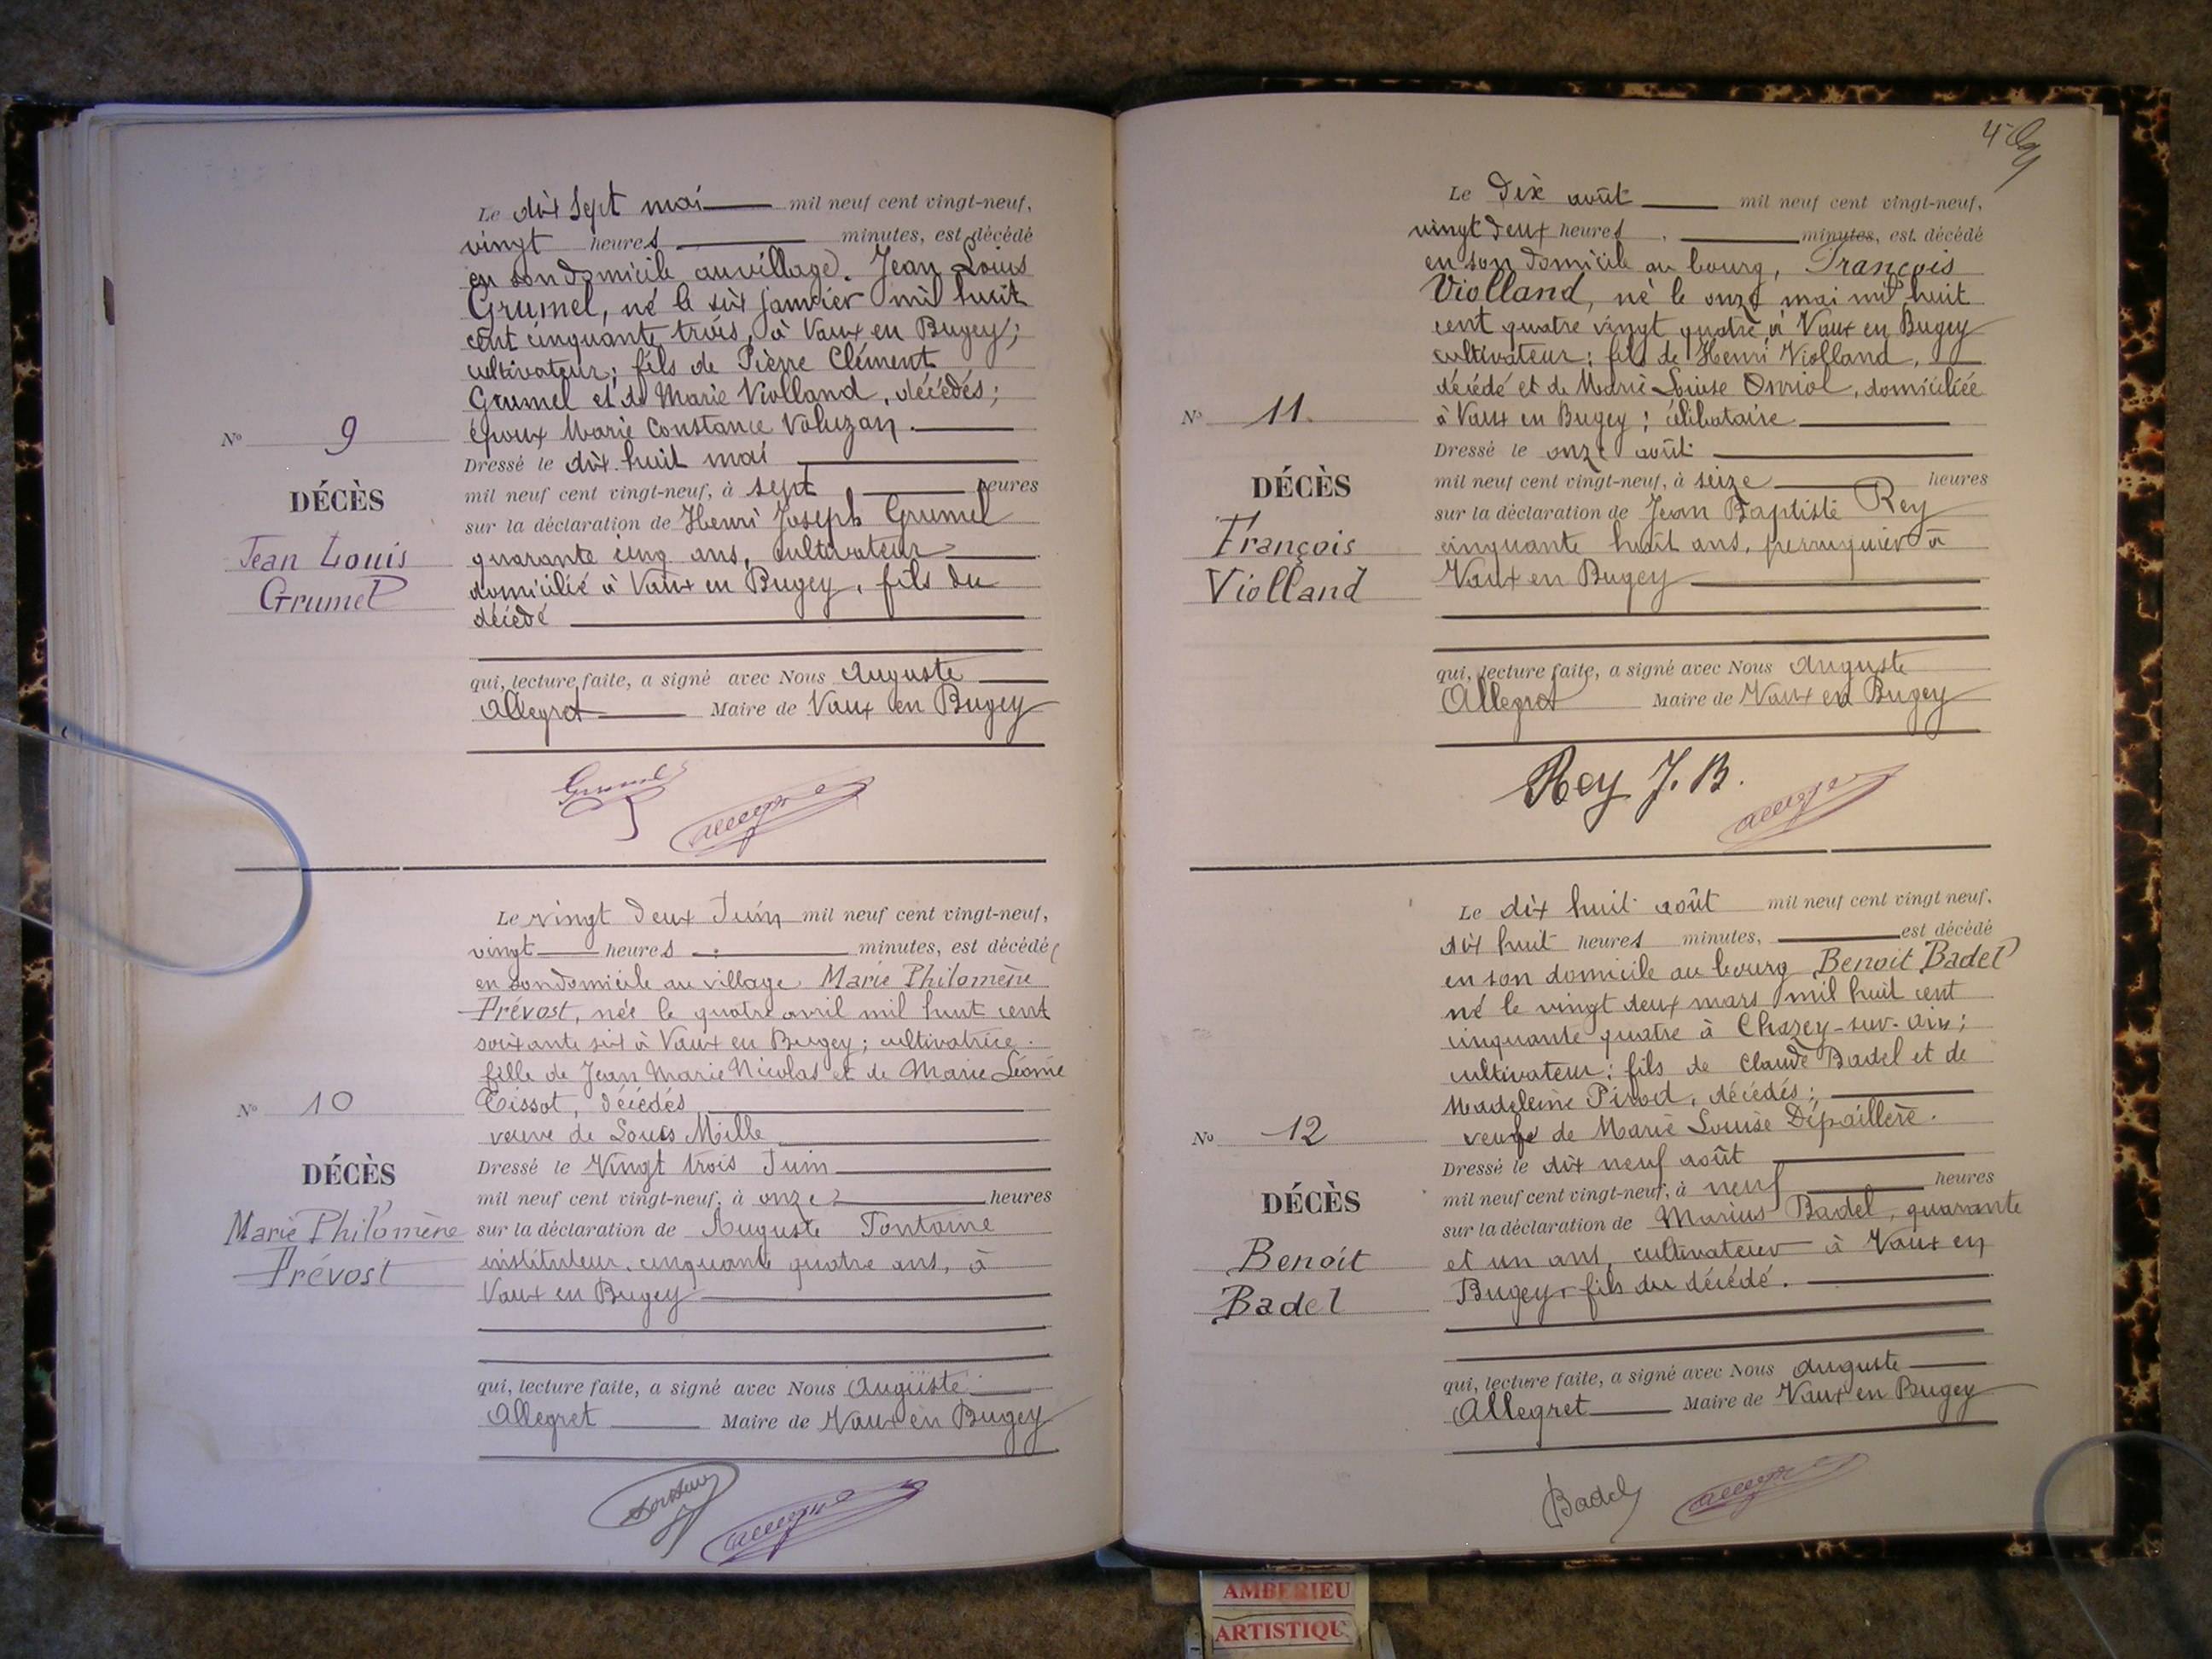 Le dix sept mai mil neuf cent vingt-neuf,
vingt heures minutes, est décédé
en son domicile au village. Jean Louis
Grumel, né le six janvier mil huit
cent cinquante trois, à Vaux en Bugey;
cultivateur; fils de Pierre Clément
Grumel et de Marie Violland, décédés;
époux Marie Constance Voluzan.
Dressé le dix-huit mai
mil neuf cent vingt-neuf, à sept heures
sur la déclaration de Henri Joseph Grumel
quarante cinq ans, cultivateur
domicilié à Vaux en Bugey, fils du
décédé
qui, lecture faite, a signé avec Nous Auguste
Allegret Maire de Vaux en Bugey
No 9
DÉCÈS
Jean Louis
Grumel
Grumel Allegret
Le vingt deux Juin mil neuf cent vingt-neuf,
vingt heures minutes, est décédée
en son domicile au village. Marie Philomène
Prévost, née le quatre avril mil huit cent
soixante six à Vaux en Bugey; cultivatrice.
fille de Jean Marie Nicolas et de Marie Léonie
Tissot, décédés
veuve de Louis Mille
Dressé le Vingt trois Juin
mil neuf cent vingt-neuf, à onze heures
sur la déclaration de Auguste Fontaine
instituteur, cinquante quatre ans, à
Vaux en Bugey
qui, lecture faite, a signé avec Nous Auguste
Allegret Maire de Vaux en Bugey
No 10
DÉCÈS
Marie Philomène
Prévost
Allegret
4
Le Dix août mil neuf cent vingt-neuf,
vingt deux heures minutes, est décédé
en son domicile au bourg, François
Violland, né le onze mai mil huit
cent quatre vingt quatre à Vaux en Bugey
cultivateur; fils de Henri Violland,
décédé et de Marie Louise Orriol, domiciliée
à Vaux en Bugey; célibataire
Dressé le onze août
mil neuf cent vingt-neuf, à seize heures
sur la déclaration de Jean Baptiste Rey
cinquante huit ans, perruquier à
Vaux en Bugey
qui, lecture faite, a signé avec Nous Auguste
Allegret Maire de Vaux en Bugey
No 11.
DÉCÈS
François
Violland
Rey J. B. Allegret
Le dix huit août mil neuf cent vingt neuf,
dix huit heures minutes, est décédé
en son domicile au bourg Benoit Badel
né le vingt deux mars mil huit cent
cinquante quatre à Chazey-sur-Ain;
cultivateur; fils de Claude Badel et de
Madeleine Pirod, décédés;
veuf de Marie Louise Dépaillère.
Dressé le dix neuf août
mil neuf cent vingt-neuf, à neuf heures
sur la déclaration de Marius Badel, quarante
et un ans, cultivateur à Vaux en
Bugey, fils du décédé.
qui, lecture faite, a signé avec Nous Auguste
Allegret Maire de Vaux en Bugey
No 12
DÉCÈS
Benoit
Badel
Badel Allegret
AMBERIEU
ARTISTIQU